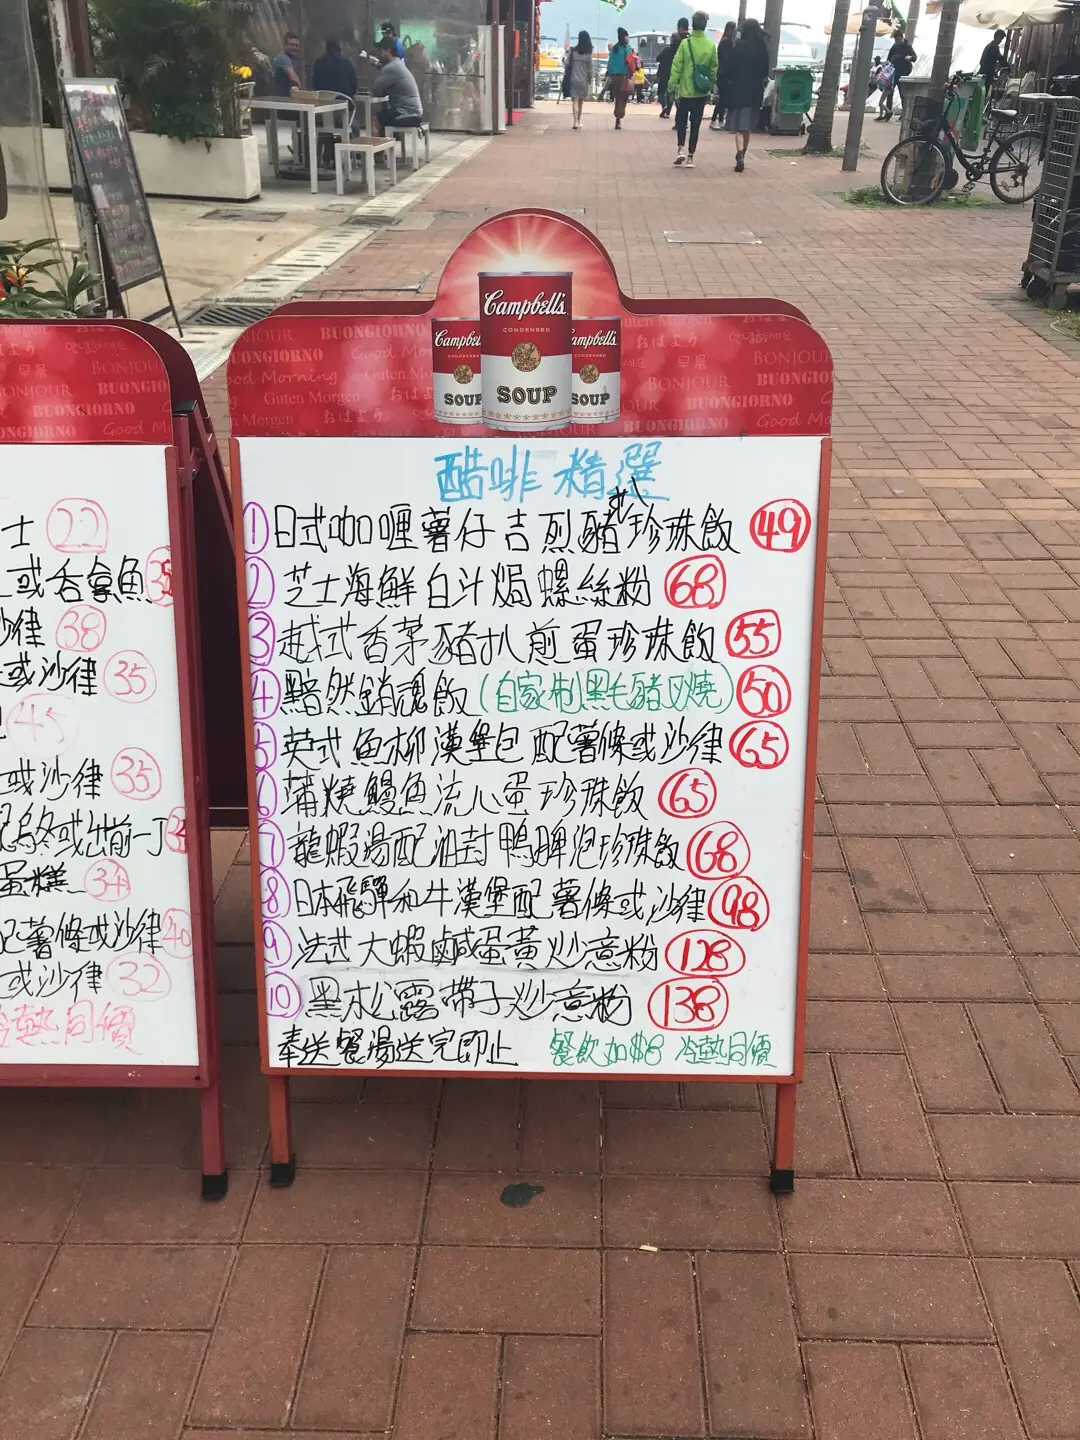 Campbell's
CONDENSED
SOUP
Campbel
CONDENSED
SOUP
ampbell's
CONDENSED
SOUP
BONJOUR
BUONGIORNO
Good Morning
Guten Morgen
おはよう
안녕하세요
早晨
酷啡精選
① 日式咖喱薯仔吉烈豬扒珍珠飯 49
② 芝士海鮮白汁焗螺絲粉 68
③ 越式香茅豬扒煎蛋珍珠飯 55
④ 黯然銷魂飯(自家制黑毛豬叉燒) 50
⑤ 英式魚柳漢堡包配薯條或沙律 65
⑥ 蒲燒鰻魚流心蛋珍珠飯 65
⑦ 龍蝦湯配油封鴨脾泡珍珠飯 68
⑧ 日本飛驒和牛漢堡配薯條或沙律 98
⑨ 法式大蝦鹹蛋黃炒意粉 128
⑩ 黑木松露帶子炒意粉 138
奉送餐湯送完即止 餐飲加$8 冷熱同價
士 22
或吞拿魚 35
沙律 38
或沙律 35
45
或沙律 35
烏冬或出前一丁
蛋糕 34
配薯條或沙律 40
或沙律 32
冷熱同價